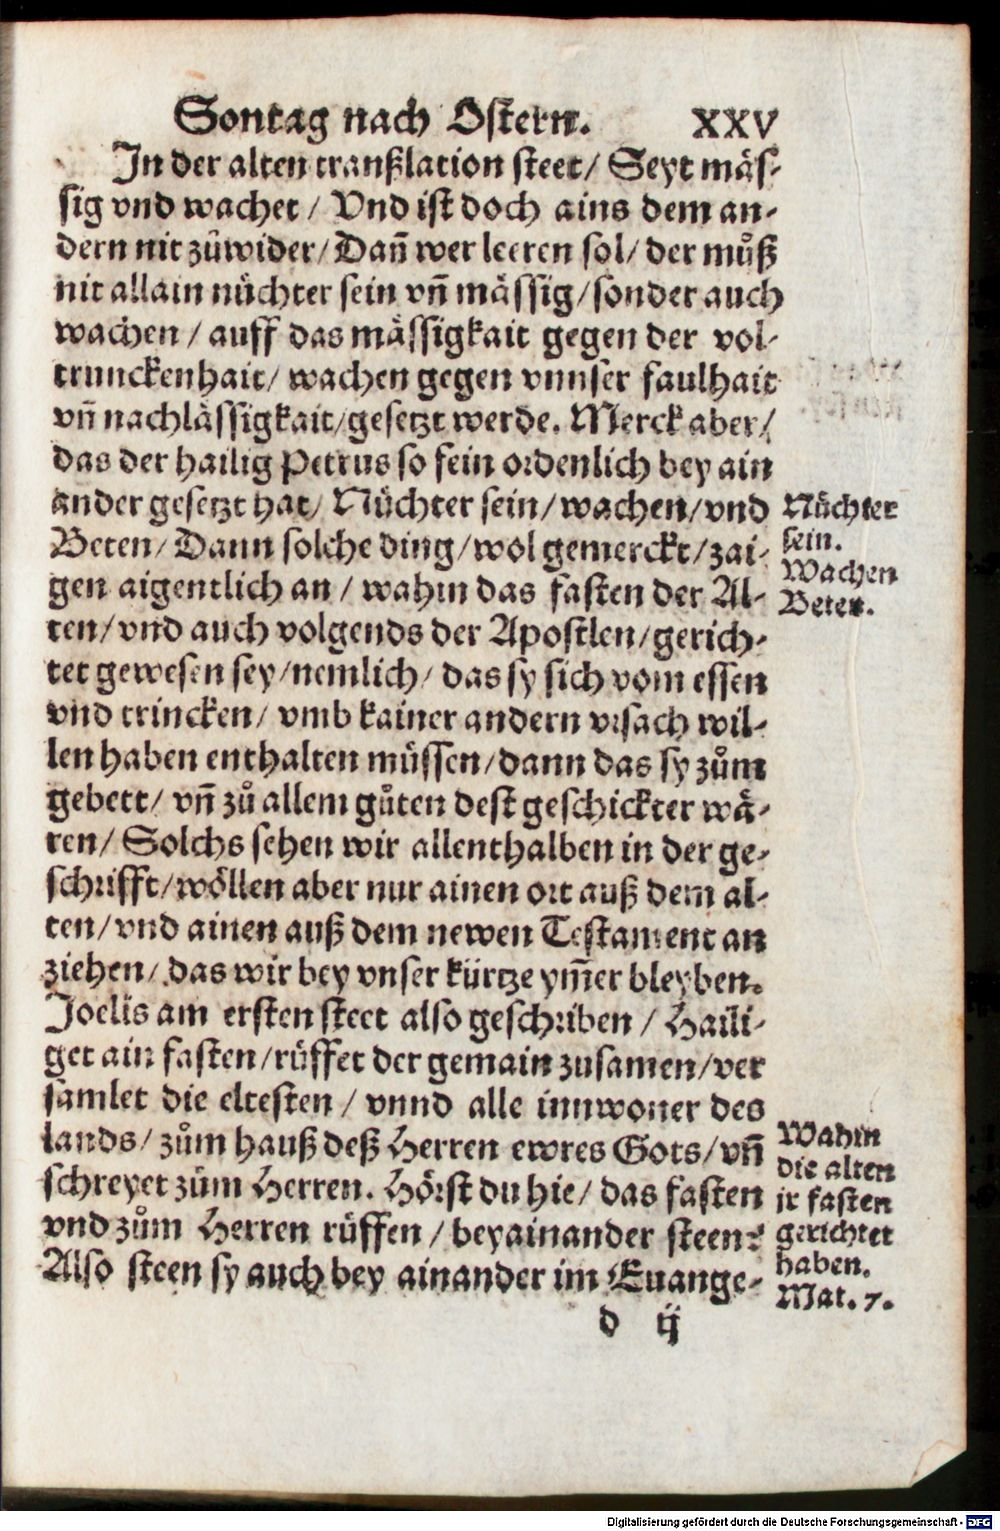 Sontag nach Ostern. XXV
In der alten tranßlation steet/ Seyt mäs-
sig vnd wachet / Vnd ist doch ains dem an-
dern nit zůwider/ Dañ wer leeren sol/ der můß
nit allain nüchter sein vñ mässig/ sonder auch
wachen / auff das mässigkait gegen der vol-
trunckenhait/ wachen gegen vnnser faulhait
vñ nachlässigkait/ gesetzt werde. Merck aber/
das der hailig Petrus so fein ordenlich bey ain
ander gesetzt hat/ Nüchter sein/ wachen/ vnd
Beten/ Dann solche ding/ wol gemerckt/ zai-
gen aigentlich an / wahin das fasten der Al-
ten/ vnd auch volgends der Apostlen/ gerich-
tet gewesen sey/ nemlich/ das sy sich vom essen
vnd trincken/ vmb kainer andern vrsach wil-
len haben enthalten müssen/ dann das sy zům
gebett/ vñ zů allem gůten dest geschickter wä-
ren/ Solchs sehen wir allenthalben in der ge-
schrifft/ wöllen aber nur ainen ort auß dem al-
ten/ vnd ainen auß dem newen Testament an
ziehen/ das wir bey vnser kürtze ym̃er bleyben.
Joelis am ersten steet also geschriben / Haili-
get ain fasten/ rüffet der gemain zusamen/ ver
samlet die eltesten / vnnd alle innwoner des
lands/ zům hauß deß Herren ewres Gots/ vñ
schreyet zům Herren. Hörst du hie/ das fasten
vnd zům Herren rüffen / beyainander steen?
Also steen sy auch bey ainander im Euange-
d ij
Nüchter
sein.
Wachen
Beten.
Wahin
die alten
jr fasten
gerichtet
haben.
Mat. 7.
Digitalisierung gefördert durch die Deutsche Forschungsgemeinschaft - DFG